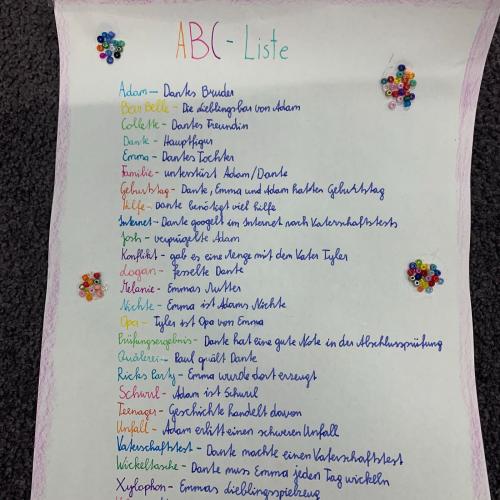 ABC-Liste
Adam - Dantes Bruder
Bear Belle - Die Lieblingsbar von Adam
Collette - Dantes Freundin
Dante - Hauptfigur
Emma - Dantes Tochter
Familie - unterstüzt Adam/Dante
Geburtstag - Dante, Emma und Adam hatten Geburtstag
Hilfe - Dante benötigt viel hilfe
Internet - Dante googelt im Internet nach Vaterschaftstests
Josh - verprügelte Adam
Konflikt - gab es eine Menge mit dem Vater Tyler
Logan - fesselte Dante
Melanie - Emmas Mutter
Nichte - Emma ist Adams Nichte
Opa - Tyler ist Opa von Emma
Prüfungsergebnis - Dante hat eine gute Note in der Abschlussprüfung
Quälerei - Paul quält Dante
Ricks Party - Emma wurde dort erzeugt
Schwul - Adam ist Schwul
Teenager - Geschichte handelt davon
Unfall - Adam erlitt einen schweren Unfall
Vaterschaftstest - Dante machte einen Vaterschaftstest
Wickeltasche - Dante muss Emma jeden Tag wickeln
Xylophon - Emmas Lieblingsspielzeug